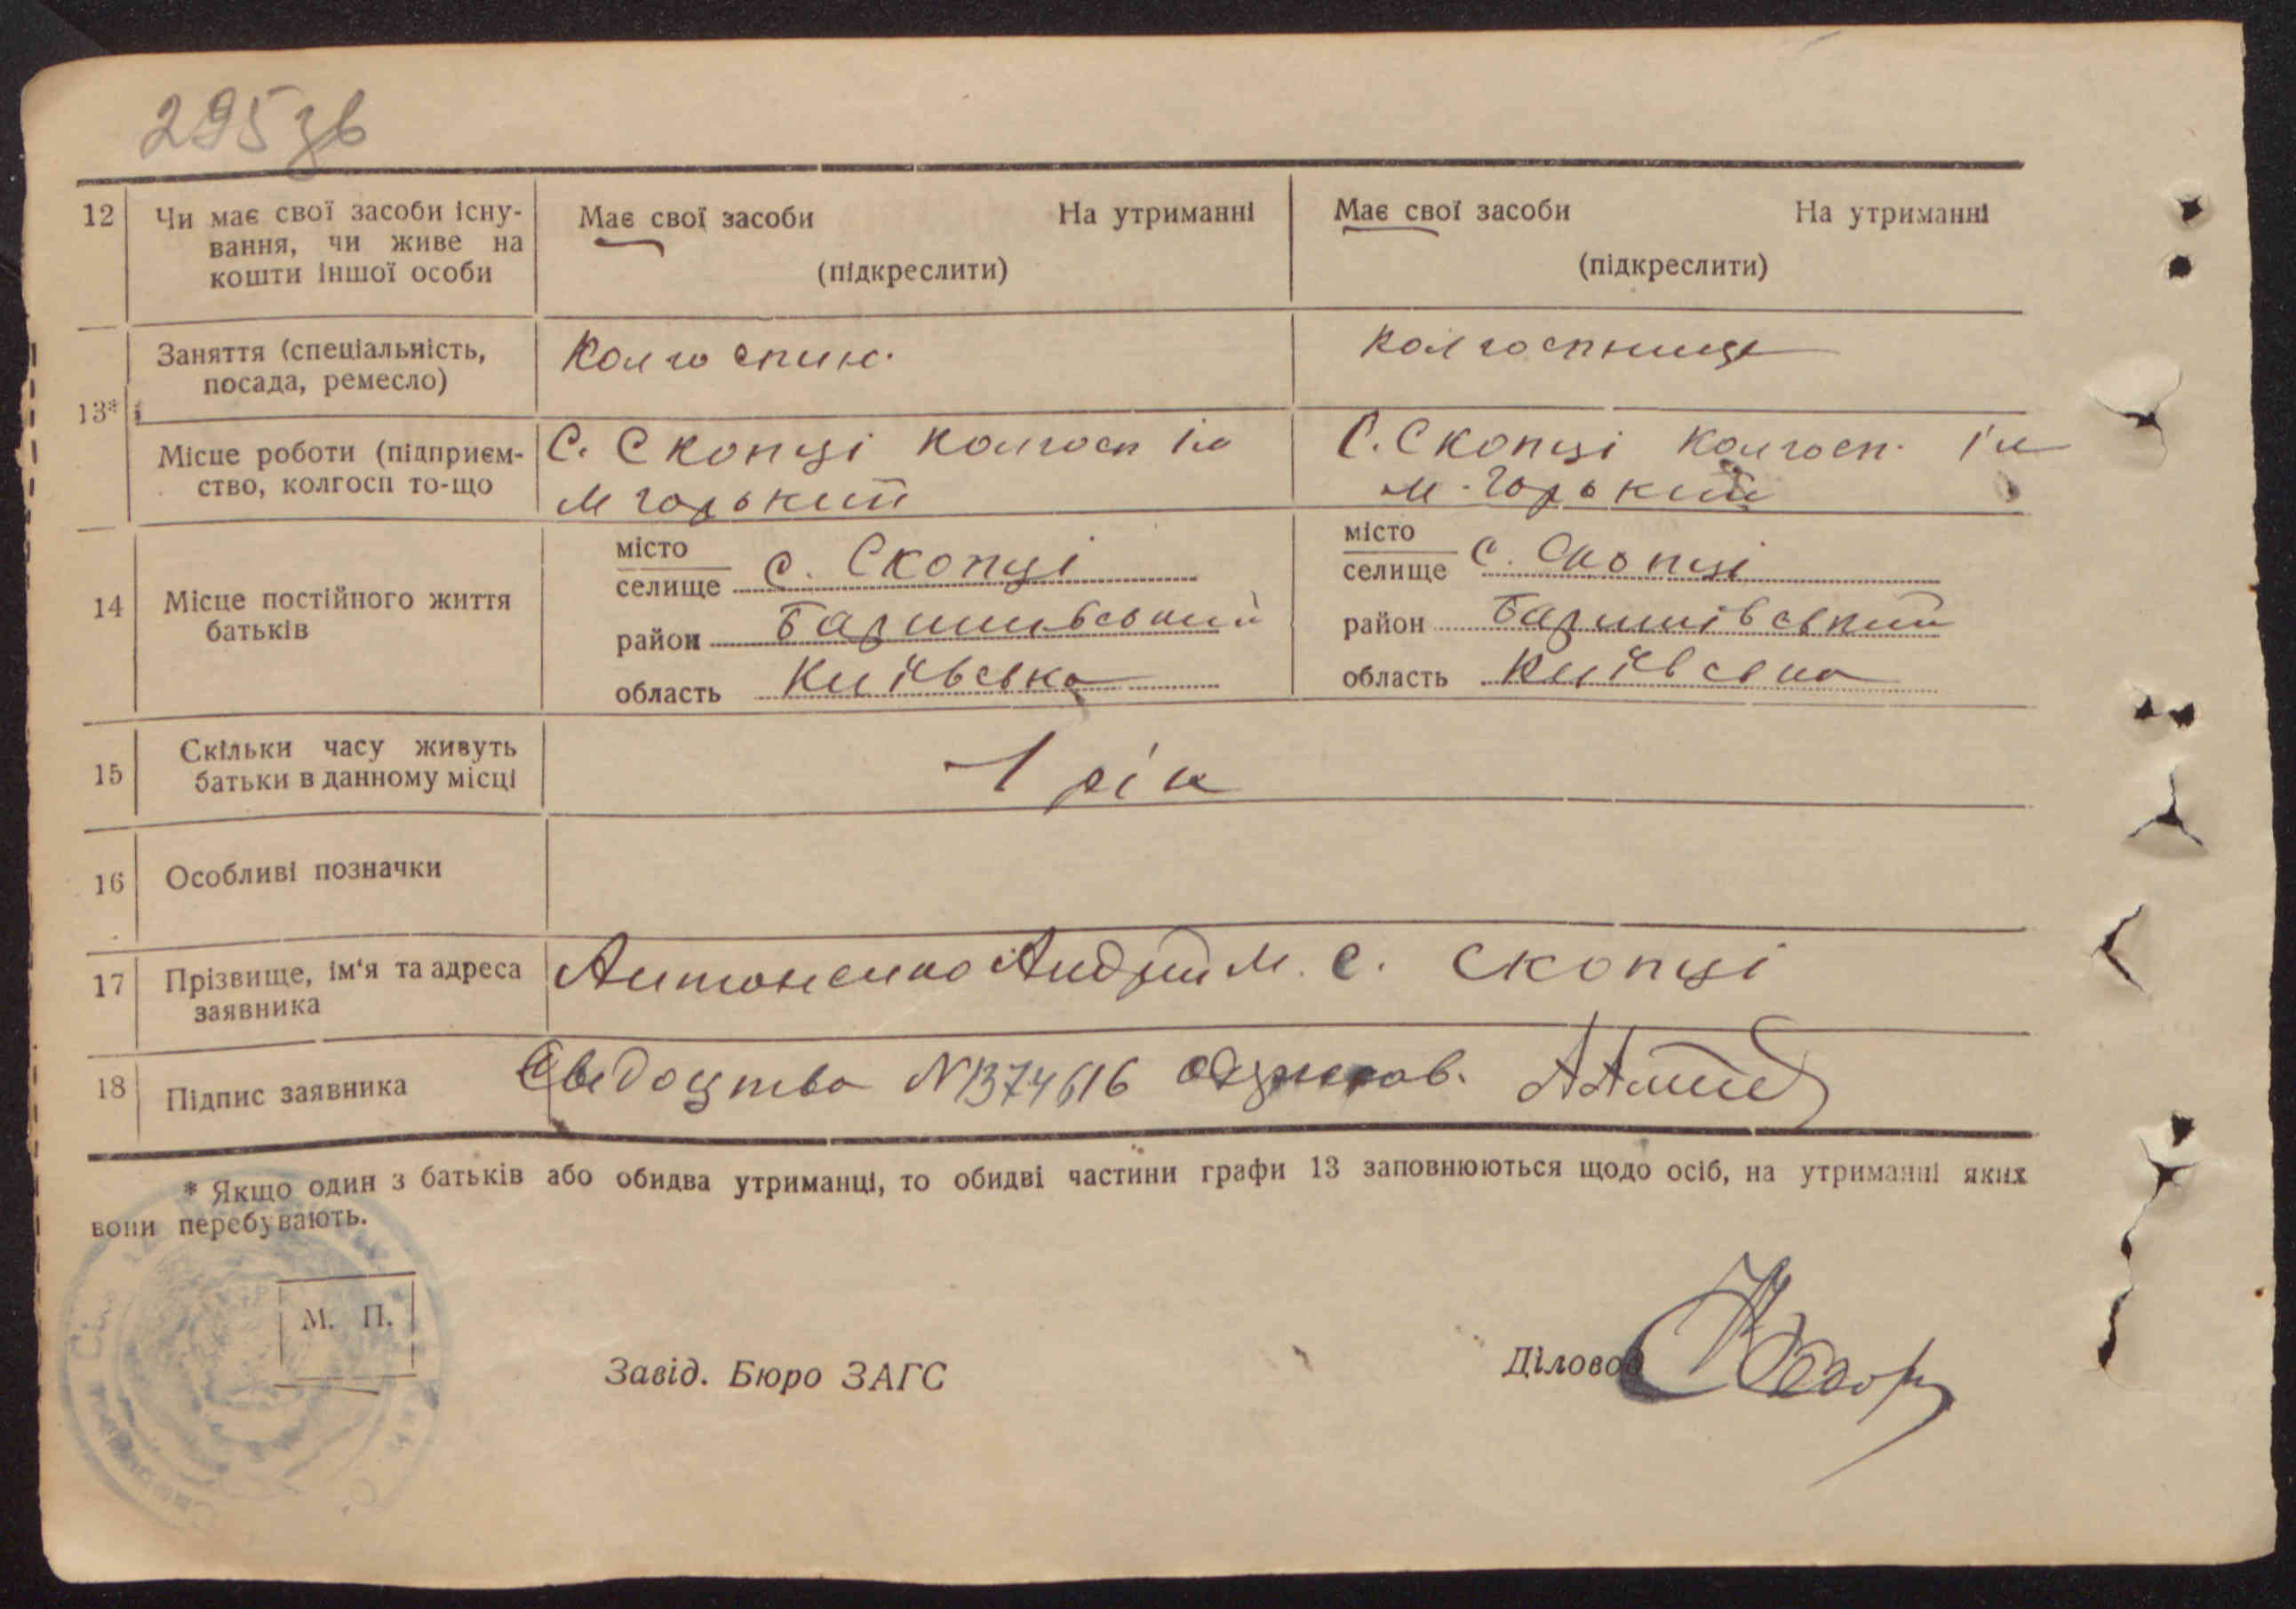 295 зв
12 Чи має свої засоби існу- Має свої засоби На утриманні Має свої засоби На утриманні
вання, чи живе на
кошти іншої особи (підкреслити) (підкреслити)
13* Заняття (спеціальність, Колгоспник. Колгоспниця
посада, ремесло)
Місце роботи (підприєм- С. Скопці Колгосп ім С. Скопці Колгосп. ім
ство, колгосп то-що М горький М. Горький
14 Місце постійного життя батьків
місто
селище с. Скопці
район Баришивський
область Київська
місто
селище с. Скопці
район Баришівський
область Київська
15 Скільки часу живуть 1 рік
батьки в данному місці
16 Особливі позначки
17 Прізвище, ім'я та адреса Антоненко Андрій М. с. Скопці
заявника
18 Підпис заявника Сведоцтво N1374616 одержав.
* Якщо один з батьків або обидва утриманці, то обидві частини графи 13 заповнюються щодо осіб, на утриманні яких
вони перебувають.
М. П.
Завід. Бюро ЗАГС Діловод